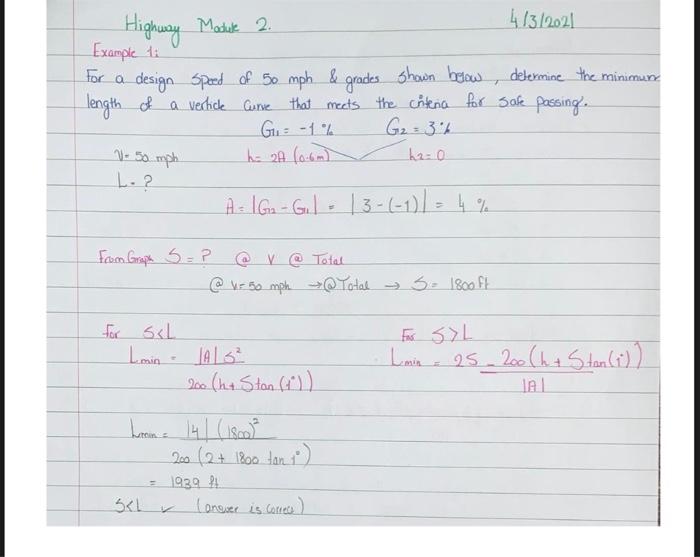 Highway Module 2.
4/3/2021
Example 1:
For a design speed of 50 mph & grades shown below, determine the minimum
length of a verticle curve that meets the criteria for safe passing.
G1 = -1 % G2 = 3 %
V= 50 mph h= 2ft (0.6m) h2=0
L = ?
A = |G2 - G1| = | 3-(-1)| = 4 %
From Graph S = ? @ V @ Total
@ V= 50 mph →@ Total → S= 1800 ft
for S<L
For S>L
Lmin = |A| S²
200 (h+ S tan (1°))
Lmin = 2S - 200 (h + S tan(i))
|A|
Lmin = |4| (1800)²
200 (2 + 1800 tan 1°)
= 1939 ft
S<L ✓ (answer is correct)